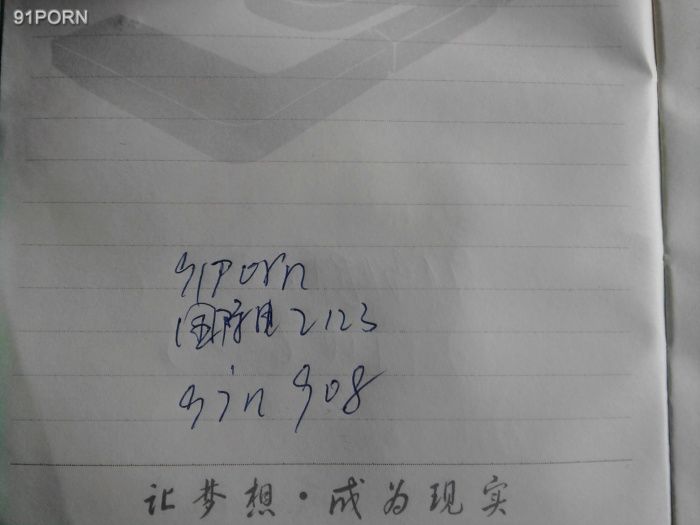 91PORN
91porn
2123
908
让梦想·成为现实